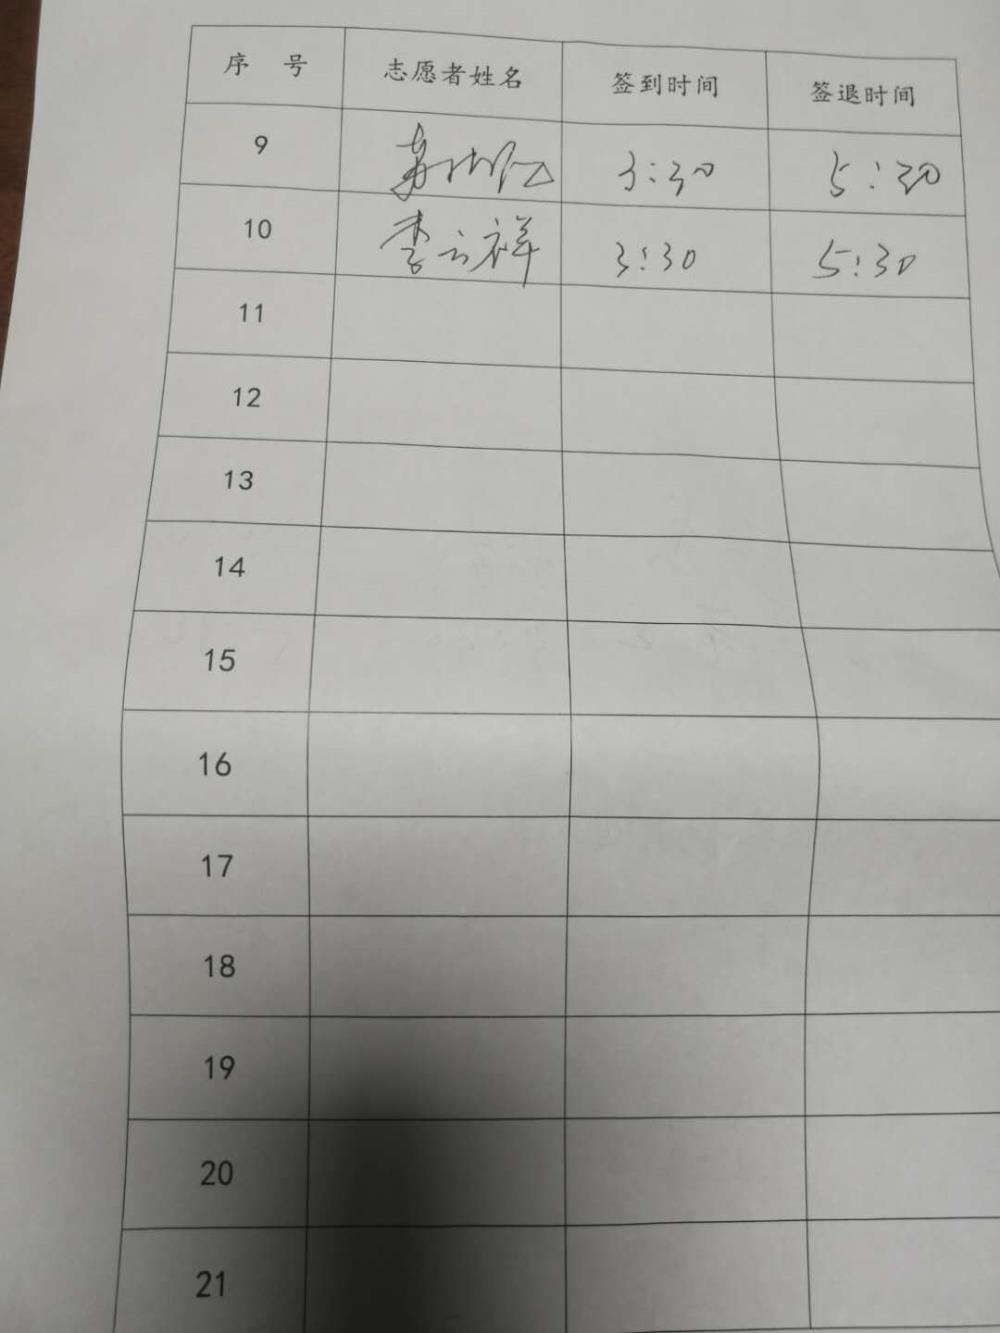 序 号 志愿者姓名 签到时间 签退时间
9 3:30 5:30
10 李云祥 3:30 5:30
11
12
13
14
15
16
17
18
19
20
21